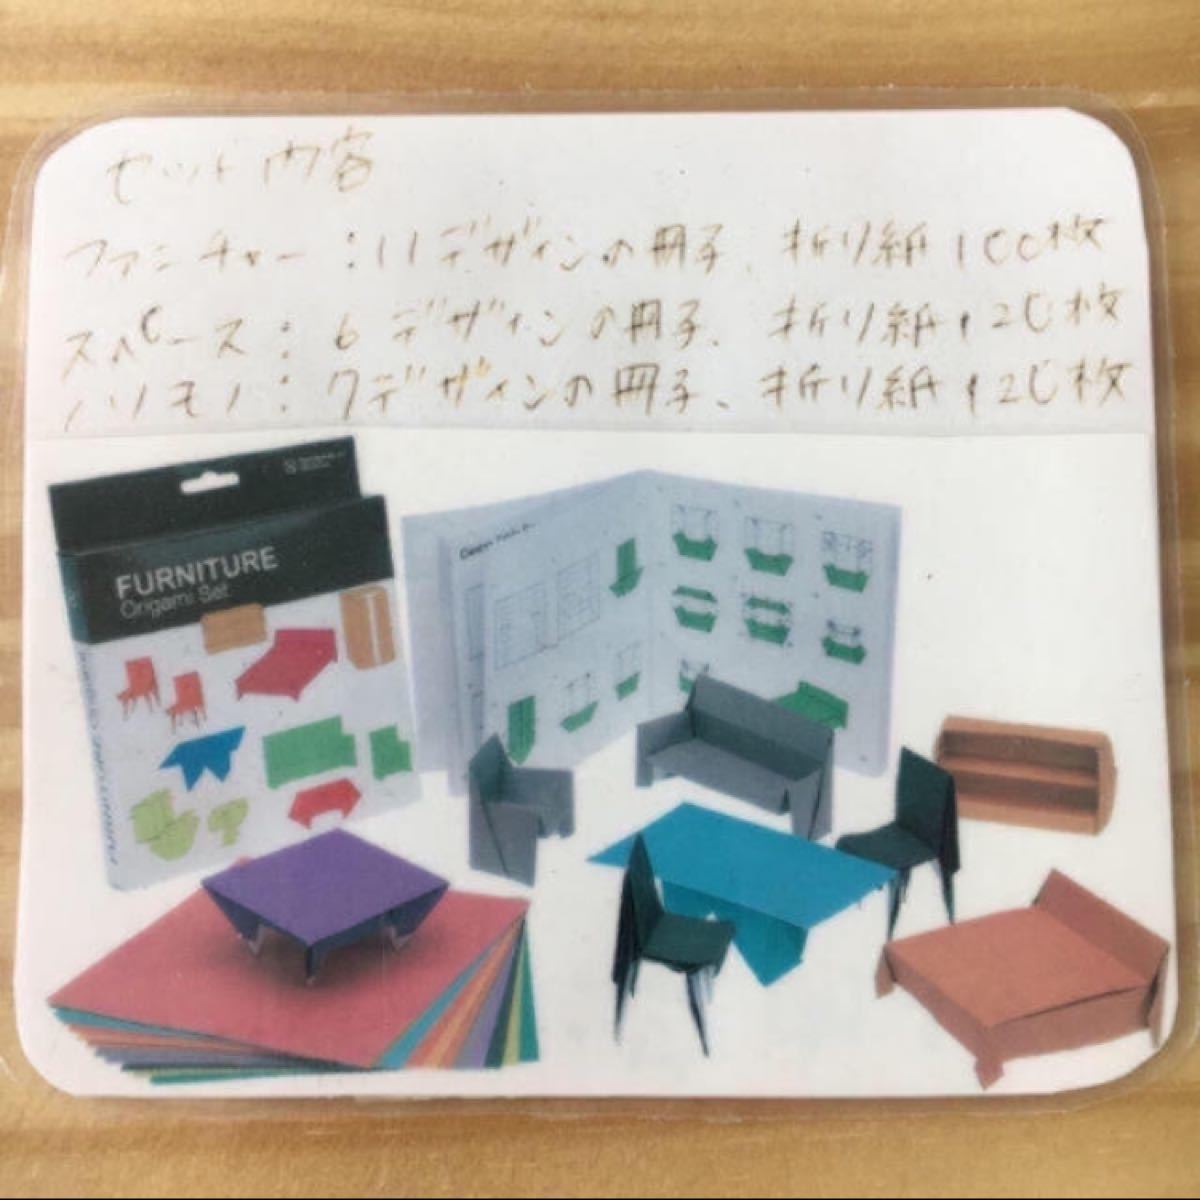 セット内容
ファニチャー:11デザインの冊子、折り紙100枚
スペース:6デザインの冊子、折り紙120枚
ノリモノ:7デザインの冊子、折り紙120枚
FURNITURE
Origami Set